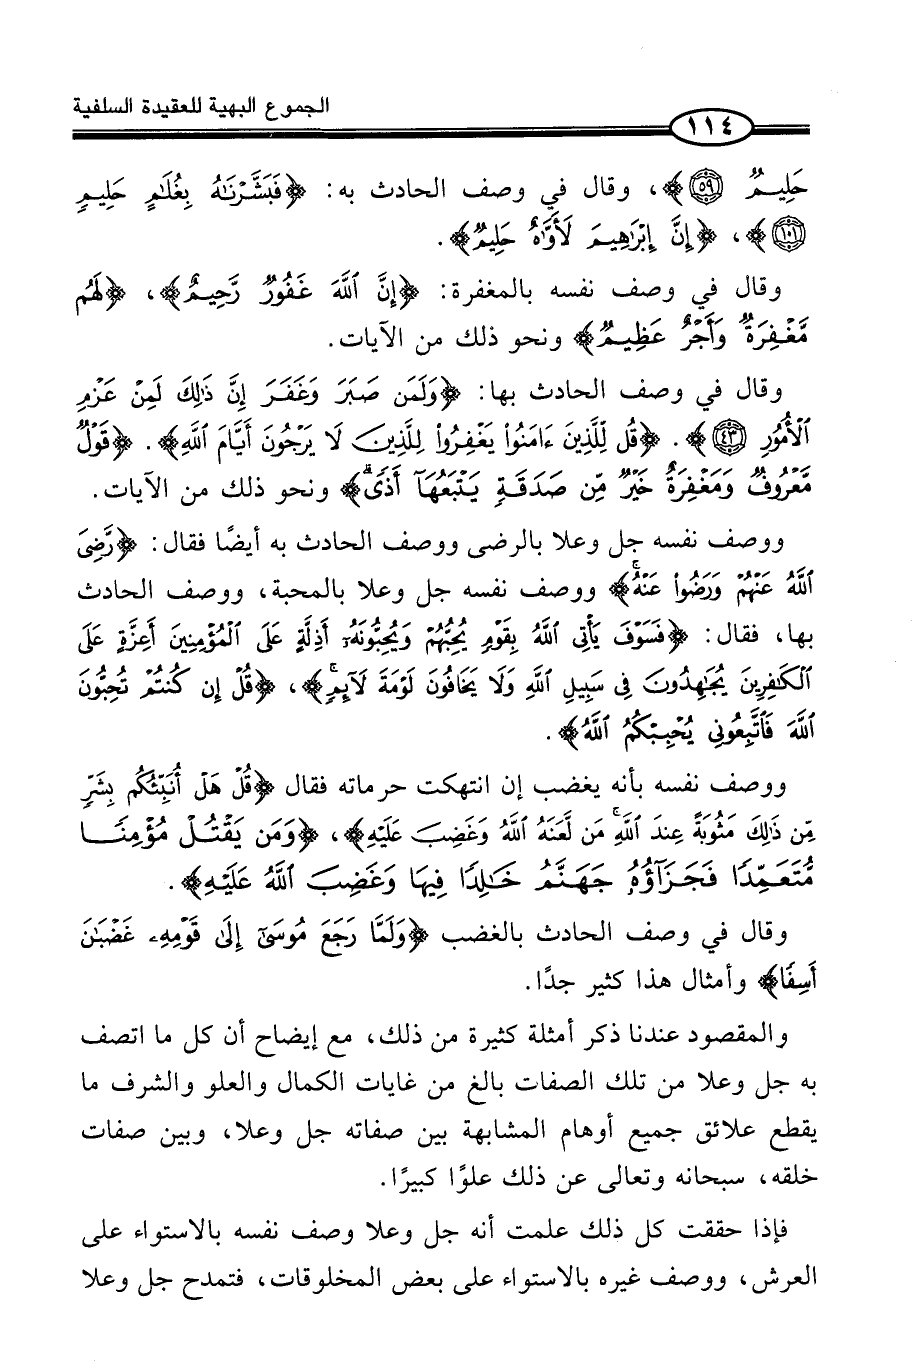 الجموع البهية للعقيدة السلفية
١١٤
حَلِيمٌ ﴿٥٩﴾﴾، وقال في وصف الحادث به: ﴿فَبَشَّرْنَٰهُ بِغُلَٰمٍ حَلِيمٍ
﴿١٠١﴾﴾، ﴿إِنَّ إِبْرَٰهِيمَ لَأَوَّٰهٌ حَلِيمٌ﴾.
وقال في وصف نفسه بالمغفرة: ﴿إِنَّ ٱللَّهَ غَفُورٌ رَّحِيمٌ﴾، ﴿لَهُم
مَّغْفِرَةٌ وَأَجْرٌ عَظِيمٌ﴾ ونحو ذلك من الآيات.
وقال في وصف الحادث بها: ﴿وَلَمَن صَبَرَ وَغَفَرَ إِنَّ ذَٰلِكَ لَمِنْ عَزْمِ
ٱلْأُمُورِ ﴿٤٣﴾﴾. ﴿قُل لِّلَّذِينَ ءَامَنُوا۟ يَغْفِرُوا۟ لِلَّذِينَ لَا يَرْجُونَ أَيَّامَ ٱللَّهِ﴾. ﴿قَوْلٌ
مَّعْرُوفٌ وَمَغْفِرَةٌ خَيْرٌ مِّن صَدَقَةٍ يَتْبَعُهَآ أَذًى ۗ﴾ ونحو ذلك من الآيات.
ووصف نفسه جل وعلا بالرضى ووصف الحادث به أيضًا فقال: ﴿رَّضِىَ
ٱللَّهُ عَنْهُمْ وَرَضُوا۟ عَنْهُ ۚ﴾ ووصف نفسه جل وعلا بالمحبة، ووصف الحادث
بها، فقال: ﴿فَسَوْفَ يَأْتِى ٱللَّهُ بِقَوْمٍ يُحِبُّهُمْ وَيُحِبُّونَهُۥٓ أَذِلَّةٍ عَلَى ٱلْمُؤْمِنِينَ أَعِزَّةٍ عَلَى
ٱلْكَٰفِرِينَ يُجَٰهِدُونَ فِى سَبِيلِ ٱللَّهِ وَلَا يَخَافُونَ لَوْمَةَ لَآئِمٍ ۚ﴾، ﴿قُلْ إِن كُنتُمْ تُحِبُّونَ
ٱللَّهَ فَٱتَّبِعُونِى يُحْبِبْكُمُ ٱللَّهُ﴾.
ووصف نفسه بأنه يغضب إن انتهكت حرماته فقال ﴿قُلْ هَلْ أُنَبِّئُكُم بِشَرٍّ
مِّن ذَٰلِكَ مَثُوبَةً عِندَ ٱللَّهِ ۚ مَن لَّعَنَهُ ٱللَّهُ وَغَضِبَ عَلَيْهِ﴾، ﴿وَمَن يَقْتُلْ مُؤْمِنًا
مُّتَعَمِّدًا فَجَزَآؤُهُۥ جَهَنَّمُ خَٰلِدًا فِيهَا وَغَضِبَ ٱللَّهُ عَلَيْهِ﴾.
وقال في وصف الحادث بالغضب ﴿وَلَمَّا رَجَعَ مُوسَىٰٓ إِلَىٰ قَوْمِهِۦ غَضْبَٰنَ
أَسِفًا﴾ وأمثال هذا كثير جدًا.
والمقصود عندنا ذكر أمثلة كثيرة من ذلك، مع إيضاح أن كل ما اتصف
به جل وعلا من تلك الصفات بالغ من غايات الكمال والعلو والشرف ما
يقطع علائق جميع أوهام المشابهة بين صفاته جل وعلا، وبين صفات
خلقه، سبحانه وتعالى عن ذلك علوًا كبيرًا.
فإذا حققت كل ذلك علمت أنه جل وعلا وصف نفسه بالاستواء على
العرش، ووصف غيره بالاستواء على بعض المخلوقات، فتمدح جل وعلا